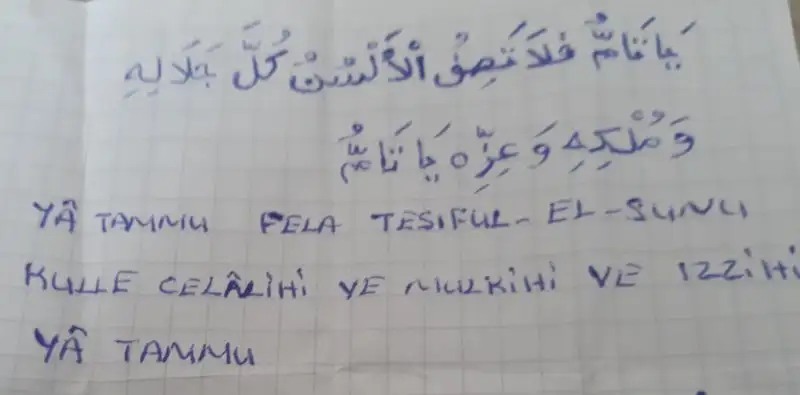 يَا تَامُّ فَلَا تَصِفُ الْأَلْسُنُ كُلَّ جَلَالِهِ
وَ مُلْكِهِ وَ عِزِّهِ يَا تَامُّ
YÂ TAMMU FELA TESIFUL-EL-SUNU
KULLE CELÂLİHİ VE MULKİHİ VE IZZİHİ
YÂ TAMMU